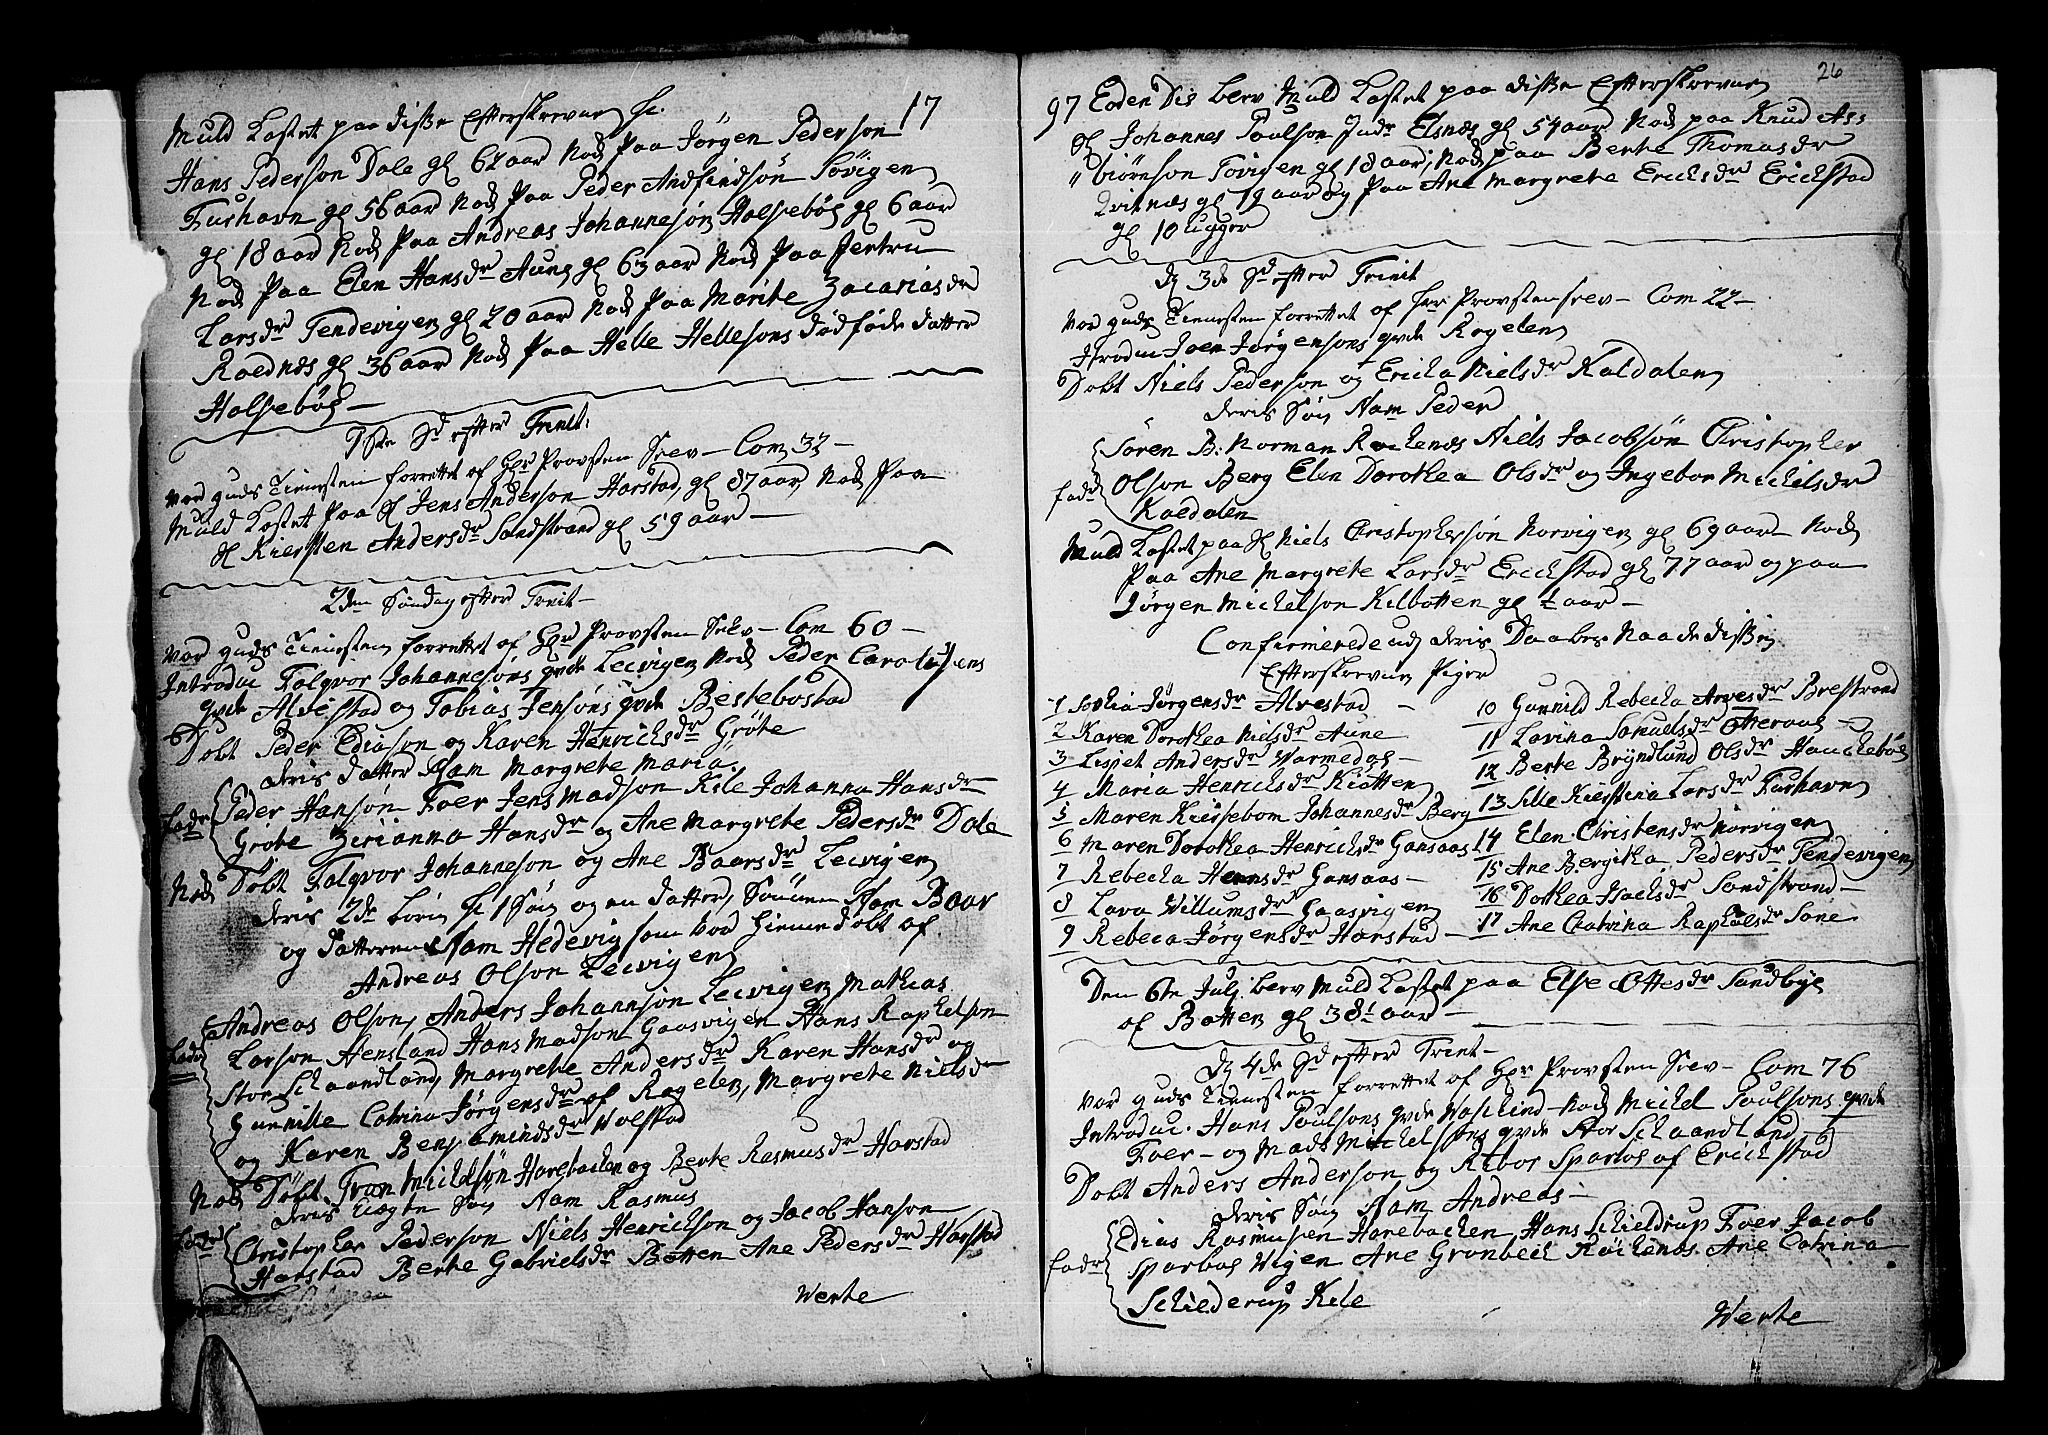 17
Muld Kastet paa diße Efterskrevne sc.
Hans Pederson Dale gl 62 aar Nok Paa Jörgen Pederson
Furhavn gl 56 aar Nok Paa Peder Andfindsön Tövigen
gl 18 aar Nok Paa Andreas Johannesön Halsebös gl 6 aar
Nok Paa Elen Hansdr Aune gl 63 aar Nok Paa Jertru
Larsdr Tendevigen gl 20 aar Nok Paa Marite Zacariasdr
Roednæs gl 36 aar Nok Paa Helle Hellesons dödföde datter
Halsebös —
1ste Sd efter Trinit:
Var guds Tienesten forrettet af Hr Provsten Srev — Com 37 —
Muld Kastet Paa sl Jens Anderson Harstad, gl 87 aar, Nok Paa
sl Kiersten Andersdr Sandstrand gl 59 aar —
2den Søndag efter Trinit —
Var guds Tienesten forrettet af Hr Provsten Srev — Com 60 —
Introduc Falqvor Johannesöns qvde Lecvigen Nok Peder Carolusens
qvde Alvestad og Tobias Jensöns qvde Bestebostad
Döbt Peder Ediason og Karen Henrichsdr Gröte
deris datter Nam Margrete Maria.
Peder Hansön Foer Jens Madson Kile Johanna Hansdr
fadr Gröte Zirianna Hansdr og Ane Margrete Pedersdr Dale
Nok Döbt Falqvor Johanneson og Ane Baarsdr Lecvigen
deris 2de börn sc 1 Sön og en datter, Sönnen Nam Baar
og datteren Nam Hedevig som var hiemmedöbt af
Andreas Olson Lecvigen
Andreas Olson, Anders Johannson Lecvigen Mathias
fadr Larson Hensland Hans Madson Gaasvigen Hans Raphelson
Stor Schaandland, Margrete Andersdr Karen Hansdr og
Gunnille Catrina Jörgensdr af Rogelen, Margrete Nielsdr
og Karen Benjamindsdr Volstad
Nok Döbt Tron Michelsön Harebacken og Berte Rasmusdr Harstad
deris Uægte Sön Nam Rasmus
fadr Christopher Pederson Niels Henrichson og Jacob Hanson
Harstad Berte Gabrielsdr Botten Ane Pedersdr Harstad
Verte
26
97 Eoden Die blev Muld Kastet paa diße Efterskrevne
sl Johannes Poulson Indr Elsnæs gl 54 aar Nok paa Knud As=
" biörnson Tövigen gl 18 aar, Nok paa Berte Thomasdr
Qvitnæs gl 19 aar og Paa Ane Margrete Erichsdr Erichstad
gl 10 uger
d 3de Sd efter Trinit
Var guds Tienesten forrettet af Hr Provsten Srev — Com 22 —
Introduc Joen Jörgensons qvde Rogelen
Döbt Niels Pederson og Ericka Nielsdr Kaldalen
deris Sön Nam Peder
Sören B: Norman Röckenæs Niels Jacobsön Christopher
fadr Olson Berg Elen Dorothea Olsdr og Ingebor Michelsdr
Kaldalen
Muld Kastet paa sl Niels Christophersön Norvigen gl 69 aar Nok
Paa Ane Margrete Larsdr Erichstad gl 77 aar og paa
Jörgen Michelson Kilbotten gl ½ aar —
Confirmerede udj deris Daabes Naade diße
Efterskrevne Piger
1 Sophia Jörgensdr Alvestad —
2 Karen Dorothea Nielsdr Aune
3 Lispet Andersdr Varmedal —
4 Maria Henrichsdr Kiötten
5 Maren Kiersebom Johannesdr Berg
6 Maren Dorothea Henrichsdr Gansaas
7 Rebecka Hansdr Gansaas —
8 Lava Willumsdr Gaasvigen
9 Rebeca Jörgensdr Harstad —
10 Gunnild Rebecka Arvesdr Brestrand
11 Lavina Samuelsdr Otteraas —
12 Berte Bryndlund Olsdr Hauckebös
13 Sille Kierstina Larsdr Furhavn
14 Elen Christensdr Norvigen
15 Ane Bergitha Pedersdr Tendevigen
16 Dorthea Isachsdr Sandstrand —
17 Ane Chatrina Raphaelsdr Sane
Den 6te Julj blev Muld Kastet paa Else Ottesdr Sandbye
af Botten gl 38½ aar —
d 4de Sd efter Trinit —
Var guds Tienesten forrettet af Hr Provsten Srev — Com 76
Introduc. Hans Poulsons qvde Vaschind — Nok Michel Poulsons qvde
Foer — og Mads Michelsöns qvde Stor Schaandland —
Döbt Anders Anderson og Rebor Sparbos af Erichstad
deris Sön Nam Andreas —
Edias Rasmusen Harebacken, Hans Schieldrup Foer Jacob
fadr Sparbos Vigen Ane Gronbech Röckenæs Ane Catrina
Schiederup Kile
Verte